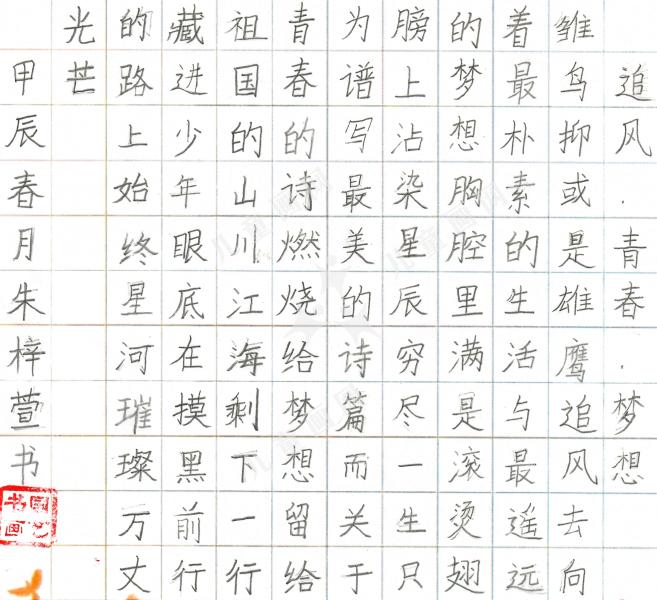 追风.青春.梦想
雏鸟抑或是雄鹰追风去向
着最朴素的生活与最遥远
的梦想胸腔里满是滚烫翅
膀上沾染星辰穷尽一生只
为谱写最美的诗篇而关于
青春的诗燃烧给梦想留给
祖国的山川江海剩下一行
藏进少年眼底在摸黑前行
的路上始终星河璀璨万丈
光芒
甲辰春月朱梓萱书